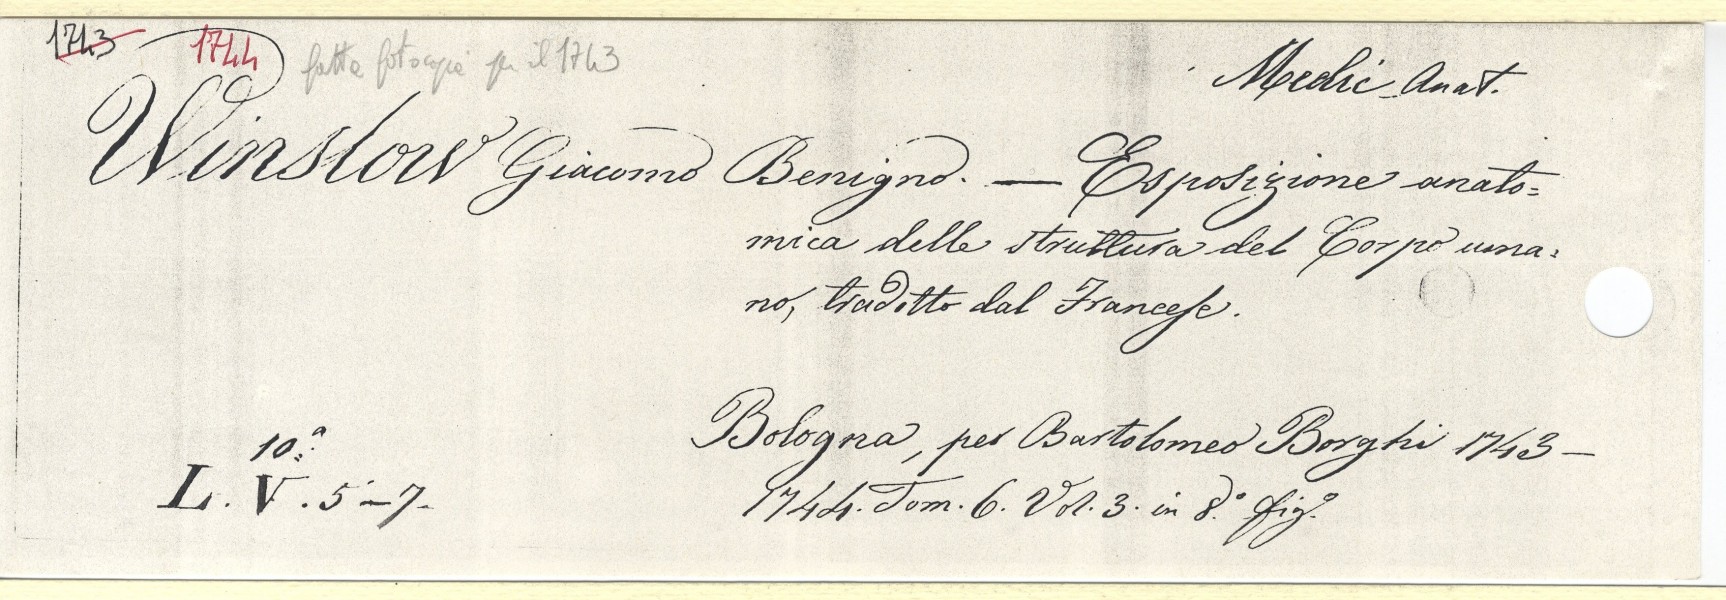 1743 1744 fatta fotocopia per il 1743
Medic. Anat.
Winslow Giacomo Benigno. — Esposizione anato=
mica delle struttura del Corpo uma=
no, tradotto dal Francese.
Bologna, per Bartolomeo Borghi 1743 —
1744. Tom. 6. Vol. 3. in 8.° fig.°
10.a
L. V. 5-7.